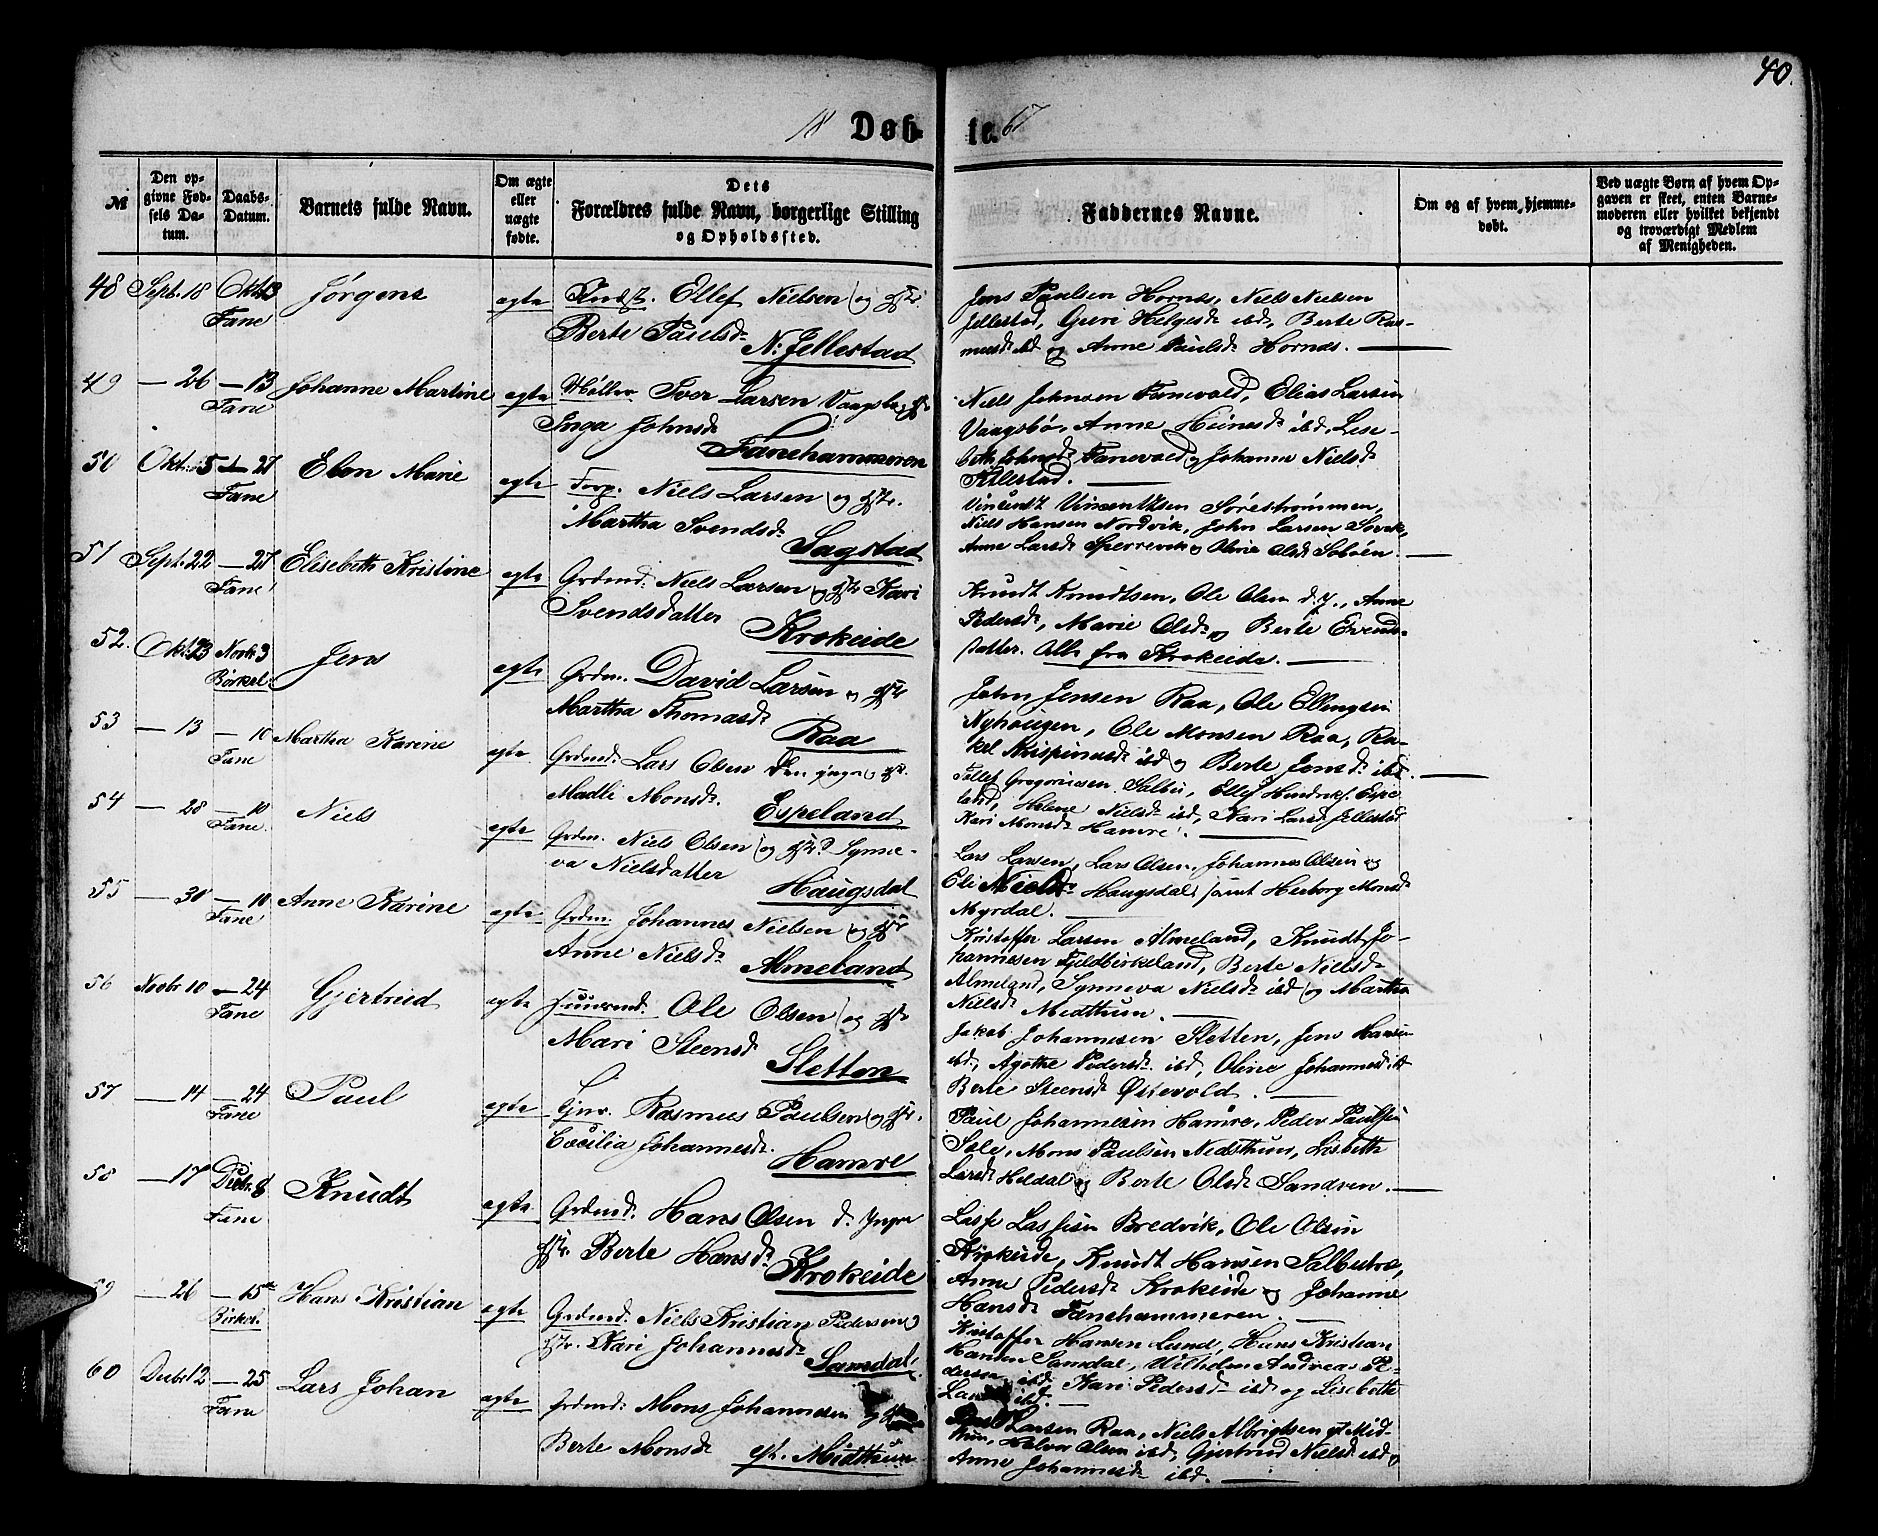 40.
18 Døb- te. 67
№
Den op-
givne Fød-
sels Da-
tum.
Daabs-
Datum.
Barnets fulde Navn.
Om ægte
eller
uægte
fødte.
Dets
Forældres fulde Navn, borgerlige Stilling
og Opholdssted.
Faddernes Navne.
Om og af hvem hjemme-
døbt.
Ved uægte Børn af hvem Op-
gaven er skeet, enten Barne-
moderen eller hvilket bekjendt
og troværdigt Medlem
af Menigheden.
48 Sept. 18 Okt. 13 Jørgen egte Ellef Nielsen og
Fane Berte Paulsd. N: Jellestad
Jens Paulsen Hornæs, Niels Nielsen
Jellestad, Guri Helgesd. ibd, Berte Ras-
musd. ibd og Anne Paulsd. Hornæs.
49 — 26 — 13 Johanne Martine egte Iver Larsen Vaagsbø
Fane Inga Johnsd. Fanehammeren
Niels Johnsen Fanevold, Elias Larsen
Vaagsbø, Anne ibd, Lise-
beth Johnsd. Fanevold og Johanne Nielsd.
Jellestad.
50 Okt. 5 — 27 Elen Marie egte Forp. Niels Larsen og
Fane Martha Svendsd. Sagstad
Vincent Vincentsen Sørestrømmen,
Niels Hansen Nordvik, John Larsen Sørvik,
Anne Larsd. Sperrevik og Olivia Olsd. Sobøen.
51 Sept. 22 — 27 Elisebeth Kristine egte Grdmd. Niels Larsen og Kari
Fane Svendsdatter Krokeide
Knudt Knudtsen, Ole Olsen d. y., Anne
Pedersd., Marie Olsd. og Berte Evends-
datter. Alle fra Krokeide.
52. Okt. 23 Novbr. 3 Jens egte Grdm. David Larsen og
Birkel. Martha Thomasd. Raa
John Jensen Raa, Ole Ellingsen
Nyhaugen, Ole Monsen Raa, Ra-
kel Krispinusd. ibd og Berte Jensd. ibd.
53 — 13 — 10 Martha Karine egte Grdmd. Lars Olsen den yngre og
Fane Madli Monsd. Espeland
Tollef Gregoriusen Salbu, Ellef Hendriks. Espe-
land, Helene Nielsd. ibd, Kari Larsd. Jellestad
Kari Monsd. Hamre.
54 — 28 — 10 Niels egte Grdm. Niels Olsen og Synne-
Fane. va Nielsdatter Haugsdal
Lars Larsen, Lars Olsen, Johannes Olsen og
Eli Nielsd. Haugsdal, samt Herborg Monsd.
Myrdal.
55 — 30 — 10 Anne Karine egte Grdm. Johannes Nielsen og
Fane Anne Nielsd. Almeland
Kristoffer Larsen Almeland, Knudt Jo-
hannesen Fjeldbirkeland, Berte Nielsd.
Almeland, Synneva Nielsd. ibd og Martha
Nielsd. Midthun.
56 Novbr. 10 — 24 Gjertrud egte Ole Olsen og
Fane Mari Steensd. Sletten
Jakob Johannesen Sletten, Jens Hansen
ibd, Agothe Pedersd. ibd, Oline Johannesd. ibd
Berte Steensd. Østevold.
57 — 14 — 24 Paul egte Rasmus Paulsen og
Fane Cecilia Johannesd. Hamre
Paul Johannesen Hamre, Peder Paulsen
Sæle, Mons Paulsen Nedsthuun, Lisbeth
Larsd. Heldal og Berte Olsd. Sandven.
58 — 17 Decbr. 8 Knudt egte Grdmd. Hans Olsen d. yngre
Fane Berte Hansd. Krokeide
Lasse Lassesen Bredvik, Ole Olsen
Krokeide, Knudt Hansen Salbutræ,
Anne Pedersd. Krokeide og Johanne
Hansd. Fanehammeren.
59 — 26 — 15de Hans Kristian egte Grdmd. Niels Kristian Pedersen og
Birkel. Kari Johannesd. Samdal.
Kristoffer Hansen Lund, Hans Kristian
Hansen Samdal, Wilhelm Andreas Pe-
dersen ibd, Kari Pedersd. ibd og Lisebeth
ibd.
60 Decbr. 12 — 25 Lars Johan egte Grdmd. Mons Johannesen og
Fane Berte Monsd. yt. Midthun
Larsen Raa, Niels Albrigtsen yt Mid-
thun, Halvor Olsen ibd, Gjertrud Nielsd. ibd og
Anne Johannesd. ibd.